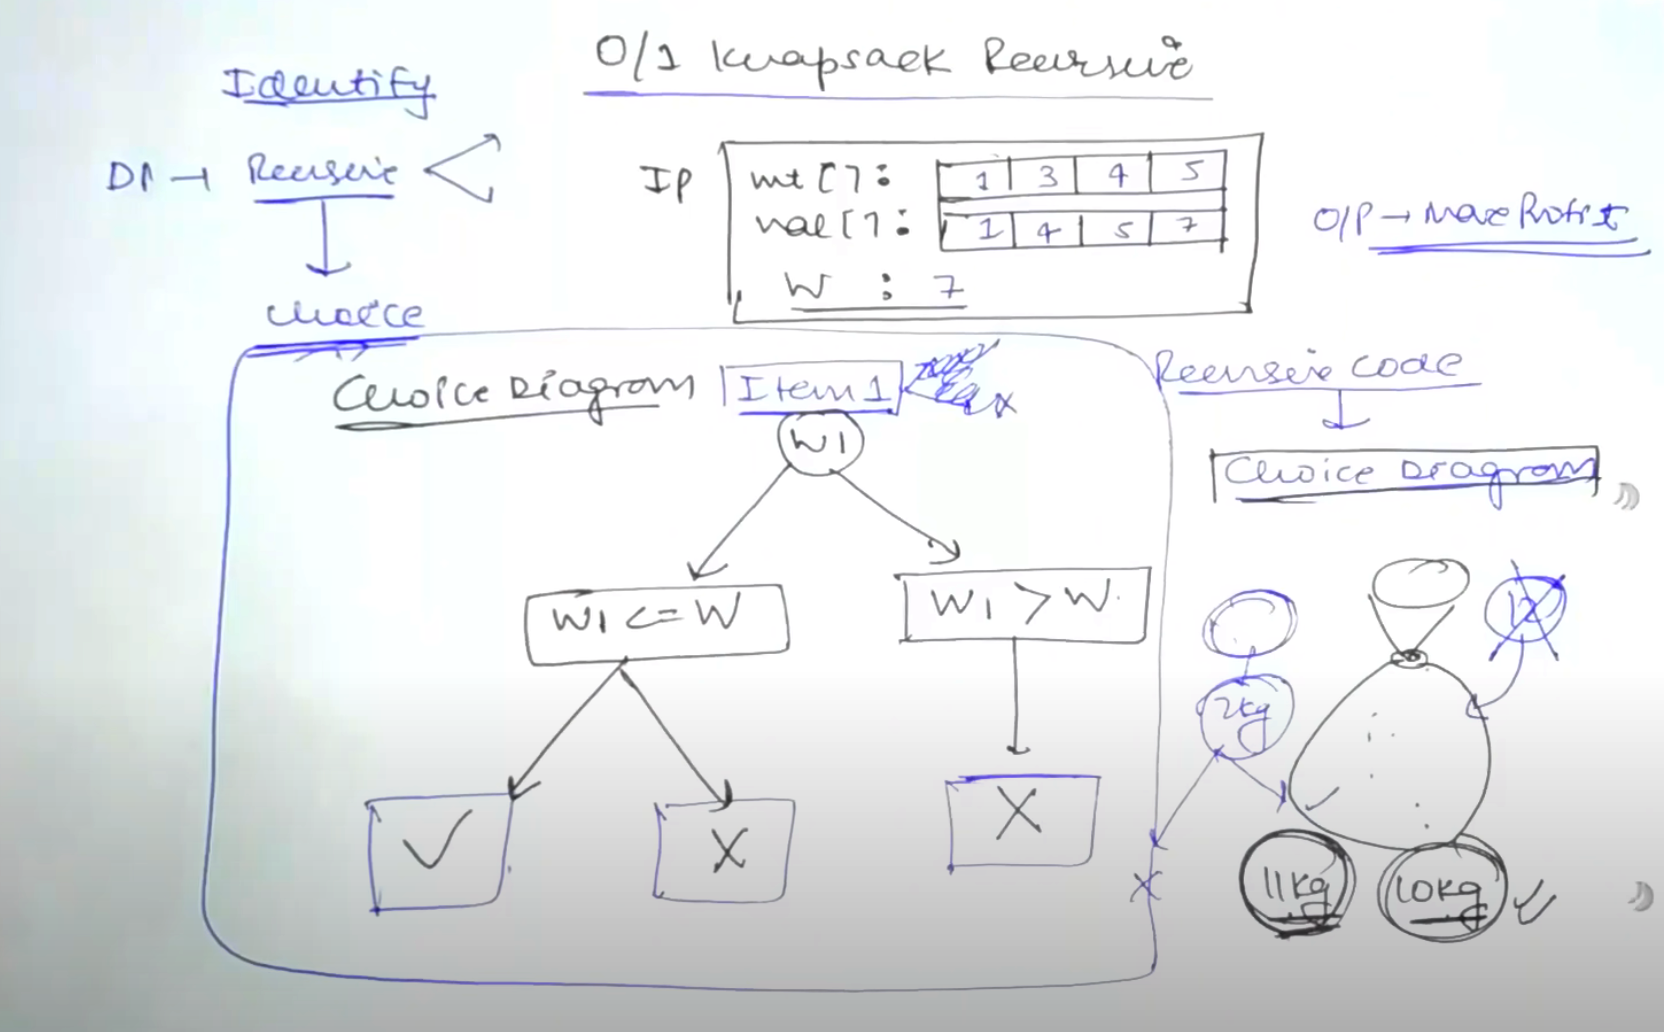 0/1 Knapsack Recursive
Identify
DP → Recursive
Choice
IP
wt[]: 1 3 4 5
val[]: 1 4 5 7
W : 7
O/P → Max Profit
Choice Diagram
Item 1
W1
W1 <= W
W1 > W
✓
X
X
X
Recursive Code
Choice Diagram
12
2kg
✓
X
11kg
10kg ✓